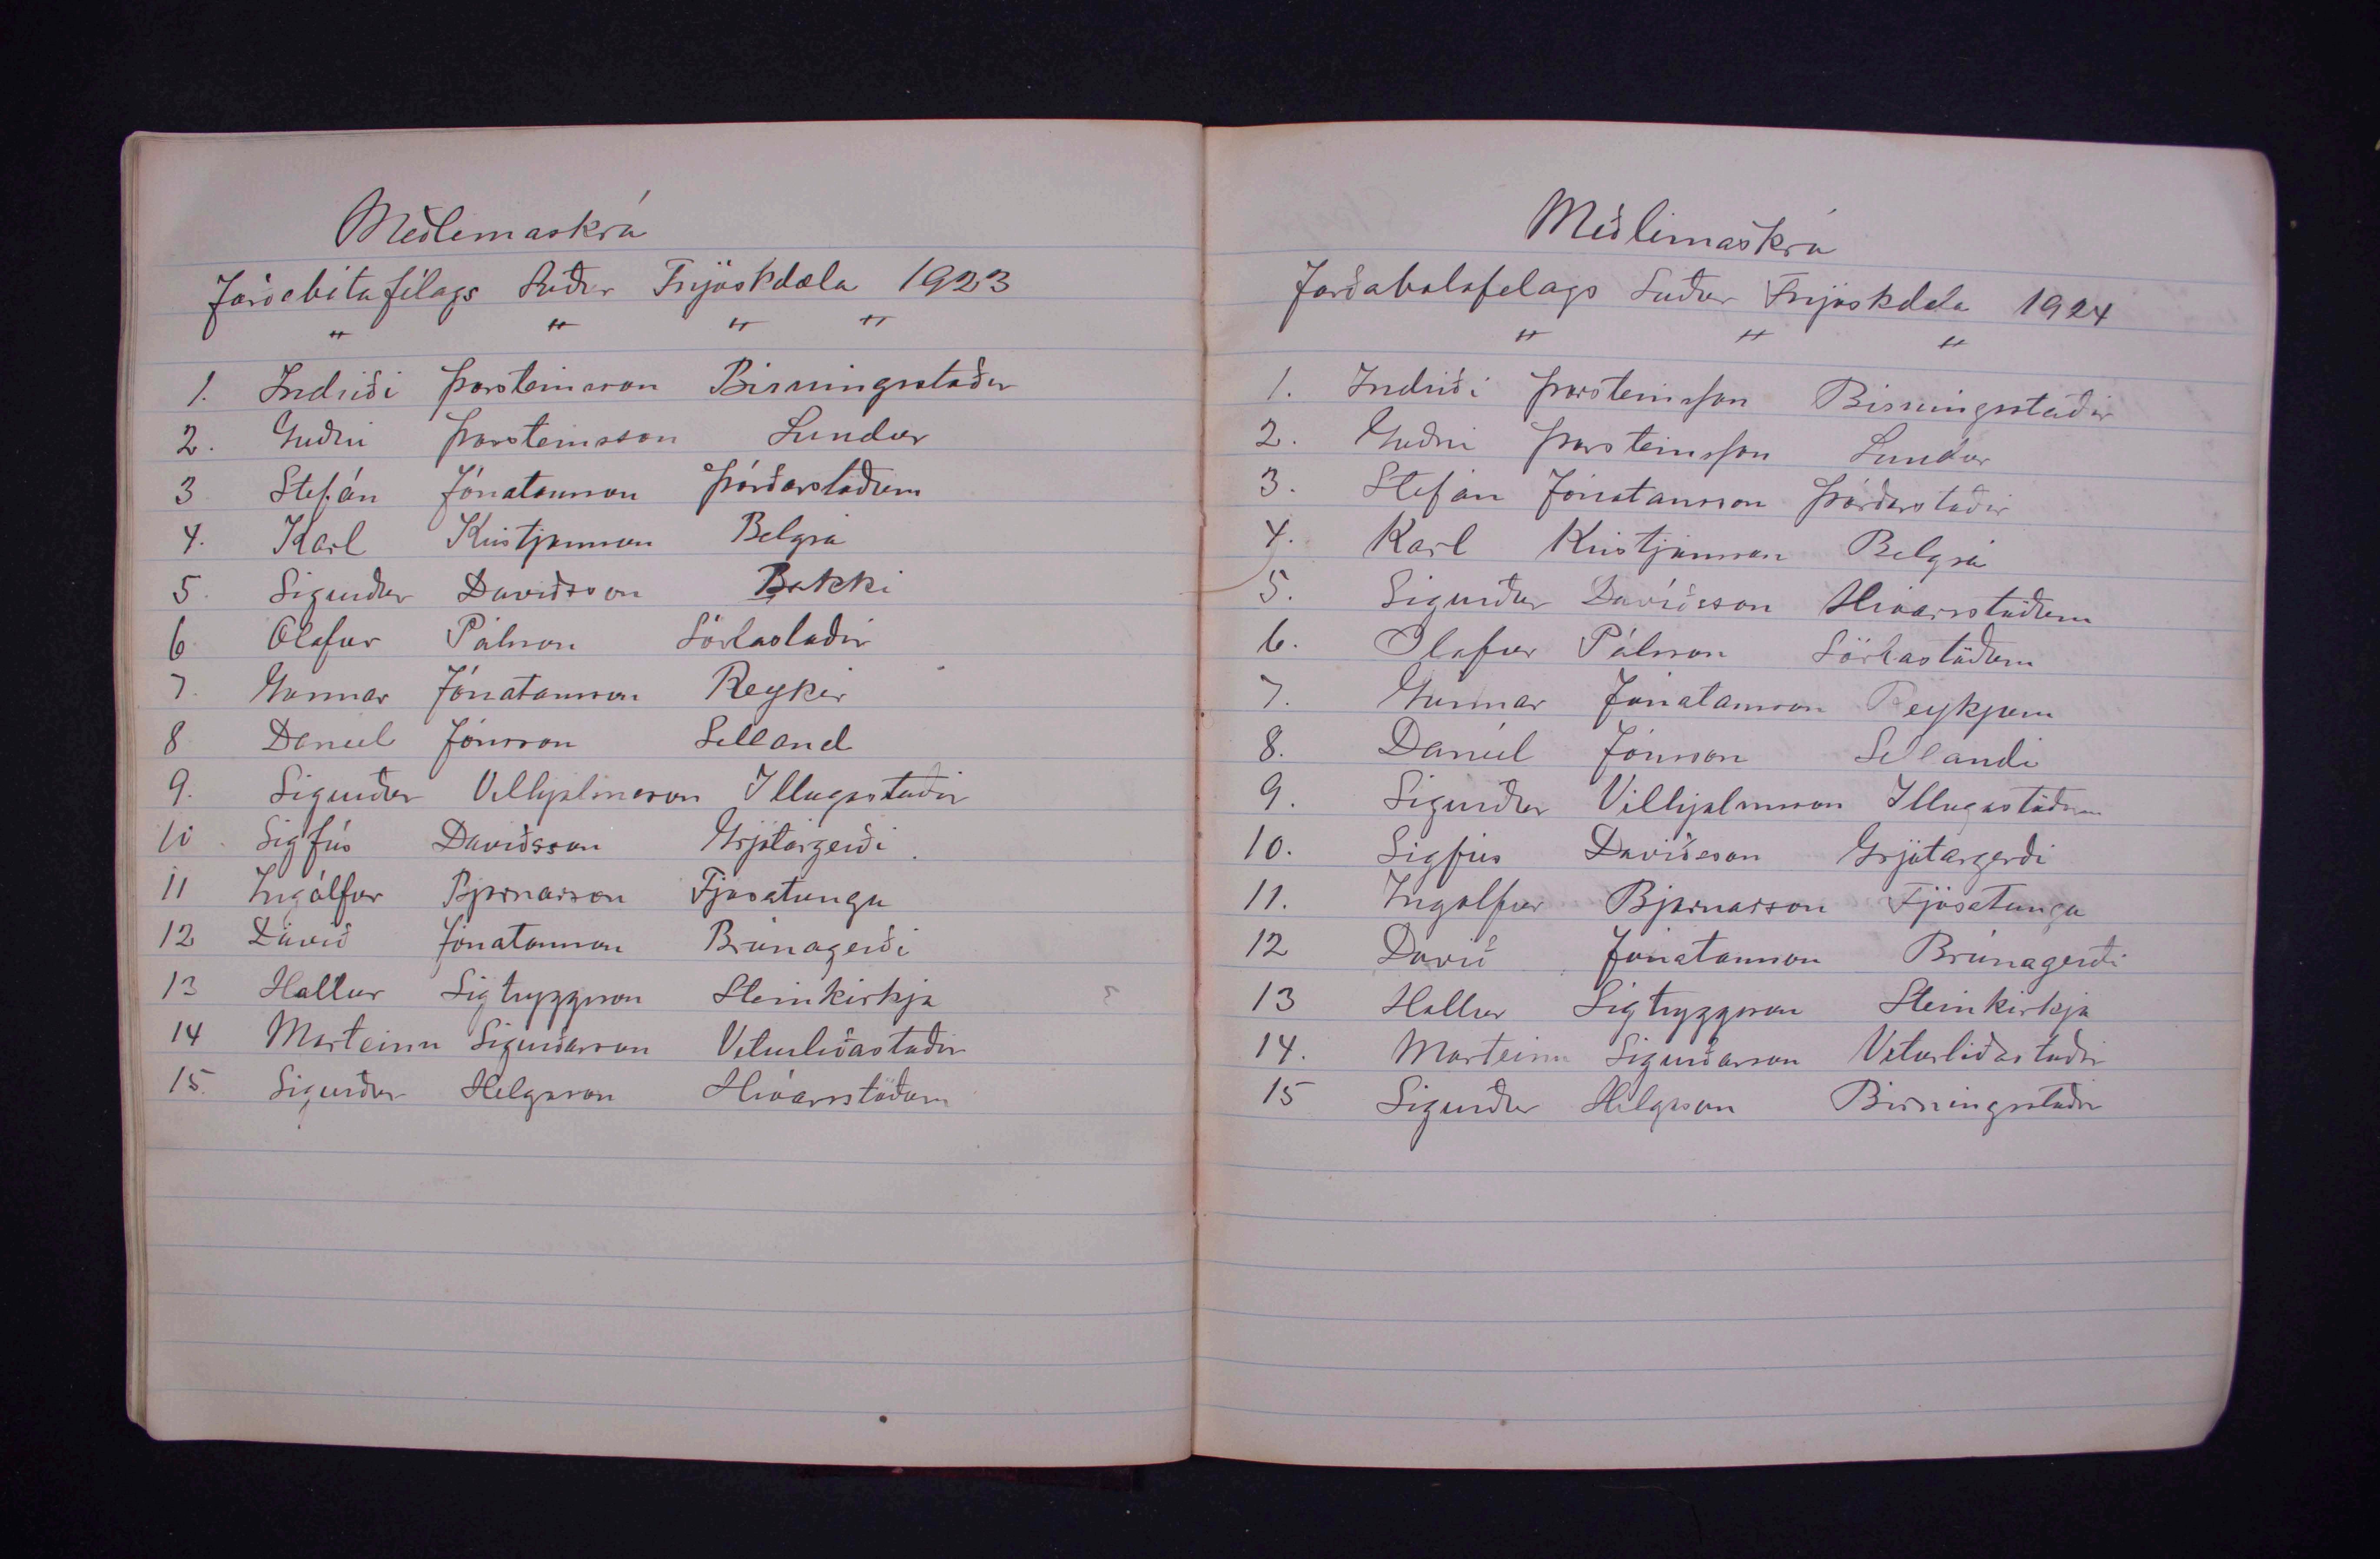 Meðlemaskrá
Jarðabótafélags Suður Fnjóskdæla 1923
" " " "
1. Indriði Þorsteinsson Birningsstaðir
2. Guðni Þorsteinsson Lundur
3 Stefán Jónatansson Þórðarstöðum
4. Karl Kristjansson Belgsá
5. Sigurður Daviðsson Bakki
6 Olafur Pálsson Sörlastaðir
7. Gunnar Jónatansson Reykir
8 Daníel Jónsson Selland
9. Sigurður Vilhjalmsson Illugastaðir
10. Sigfús Daviðsson Grjótárgerði
11 Ingólfur Bjarnarson Fjosatunga
12 Davíð Jónatansson Brúnagerði
13 Hallur Sigtryggsson Steinkirkja
14 Marteinn Sigurðarson Veturliðastaðir
15. Sigurður Helgason Hróarsstöðum
Meðlimaskrá
Jarðabotafelags Suður Fnjóskdæla 1924
" " "
1. Indriði Þorsteinsson Birningsstaðir
2. Guðni Þorsteinsson Lundur
3. Stefán Jónatansson Þórðarstaðir
4. Karl Kristjánsson Belgsá
5. Sigurður Davíðsson Hróarsstöðum
6. Olafur Pálsson Sörlastöðum
7. Gunnar Jónatansson Reykjum
8. Daníel Jónsson Sellandi
9. Sigurður Vilhjalmsson Illugastöðum
10. Sigfús Davíðsson Grjótargerði
11. Ingolfur Bjarnarson Fjósatunga
12 Davið Jónatansson Brúnagerði
13 Hallur Sigtryggsson Steinkirkja
14. Marteinn Sigurðarson Veturliðastaðir
15 Sigurður Helgason Birningsstaðir